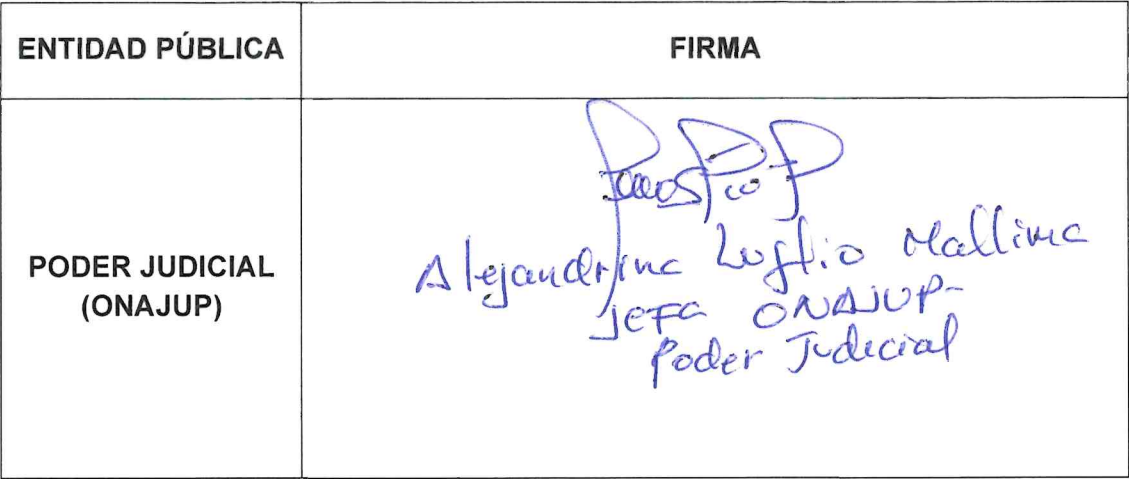 ENTIDAD PÚBLICA
FIRMA
PODER JUDICIAL
(ONAJUP)
Alejandrina Luglio Mallima
Jefa ONAJUP-
Poder Judicial